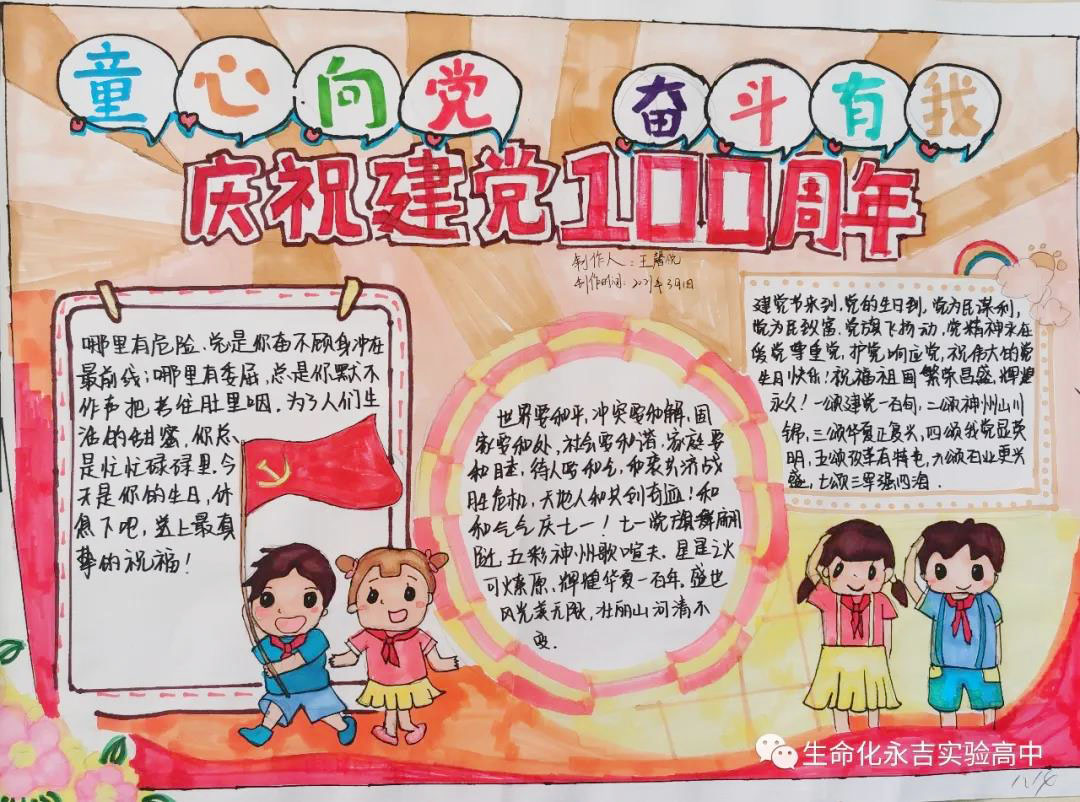 童心向党 奋斗有我
庆祝建党100周年
制作人：王馨悦
制作时间：2021年3月1日
哪里有危险、党是你奋不顾身冲在
最前线；哪里有委屈，总是你默不
作声把苦往肚里咽。为了人们生
活的甜蜜，你总
是忙忙碌碌里。今
天是你的生日，休
息下吧，送上最真
挚的祝福！
世界要和平，冲突要和解，国
家要和处，社会要和谐，家庭要
和睦，待人要和气，和衷共济战
胜危机，天地人和共创有益！和
和气气庆七一！七一党旗舞翩
跹，五彩神州歌喧天。星星之火
可燎原，辉煌华夏一百年。盛世
风光美无限，壮丽山河清不
变。
建党节来到，党的生日到，党为民谋利，
党为民致富，党旗飞扬动，党精神永在
爱党尊重党，护党响应党，祝伟大的党
生日快乐！祝福祖国繁荣昌盛，辉煌
永久！一颂建党一百旬，二颂神州山川
锦，三颂华夏正复兴，四颂我党显英
明，五颂改革有特色，六颂百业更兴
盛，七颂三军强四海．
生命化永吉实验高中